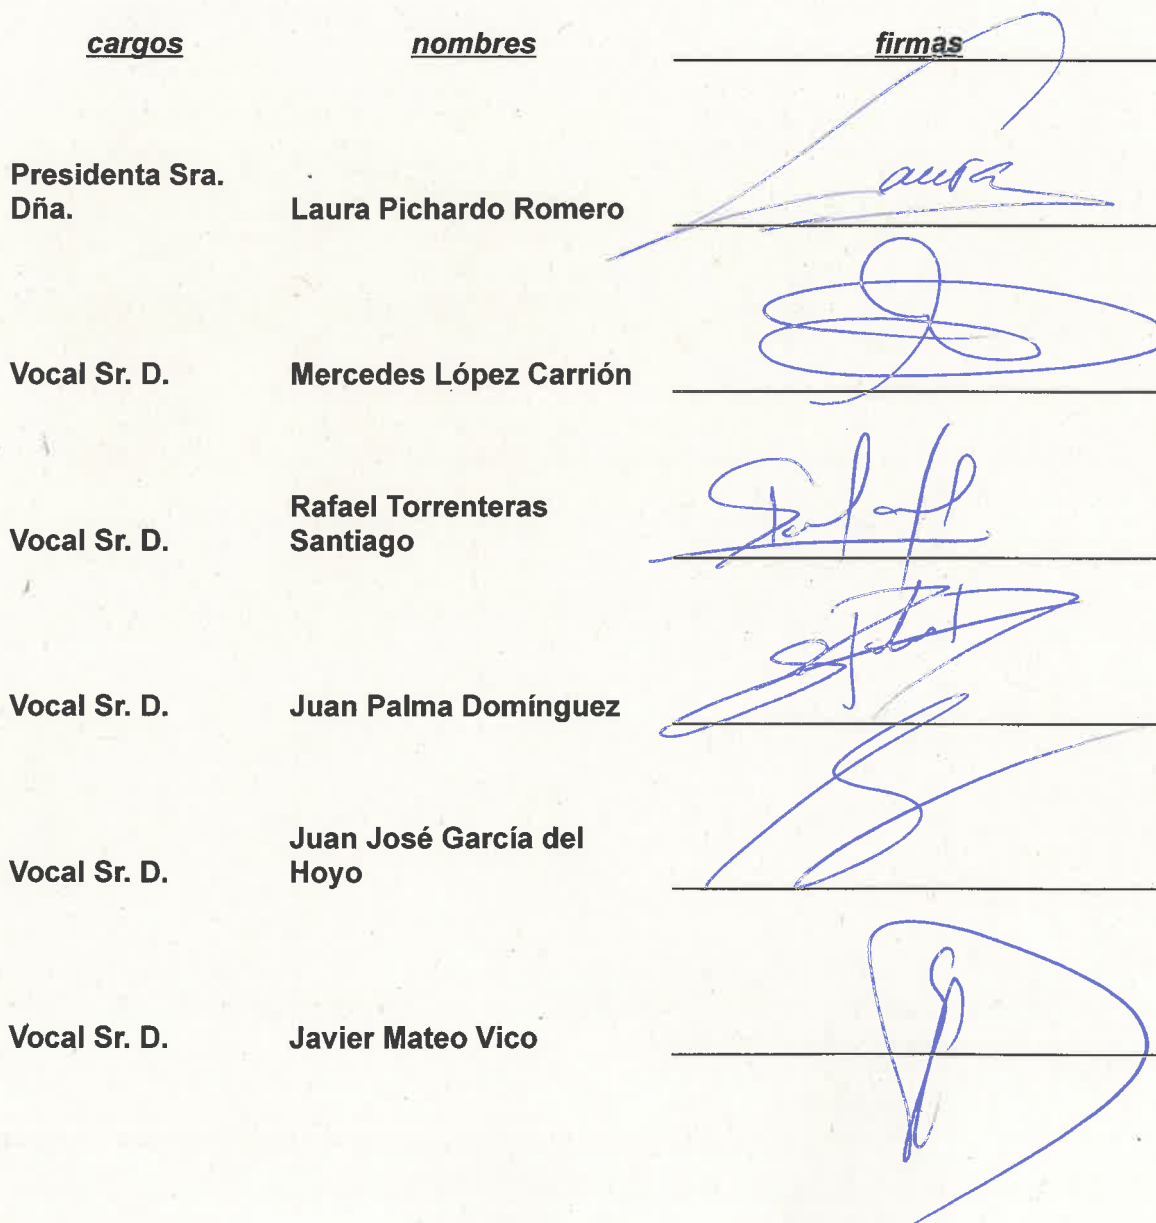 cargos nombres firmas
Presidenta Sra.
Dña. Laura Pichardo Romero
Laura
Vocal Sr. D. Mercedes López Carrión
Rafael Torrenteras
Vocal Sr. D. Santiago
Rafael
Vocal Sr. D. Juan Palma Domínguez
Juan José García del
Vocal Sr. D. Hoyo
Vocal Sr. D. Javier Mateo Vico